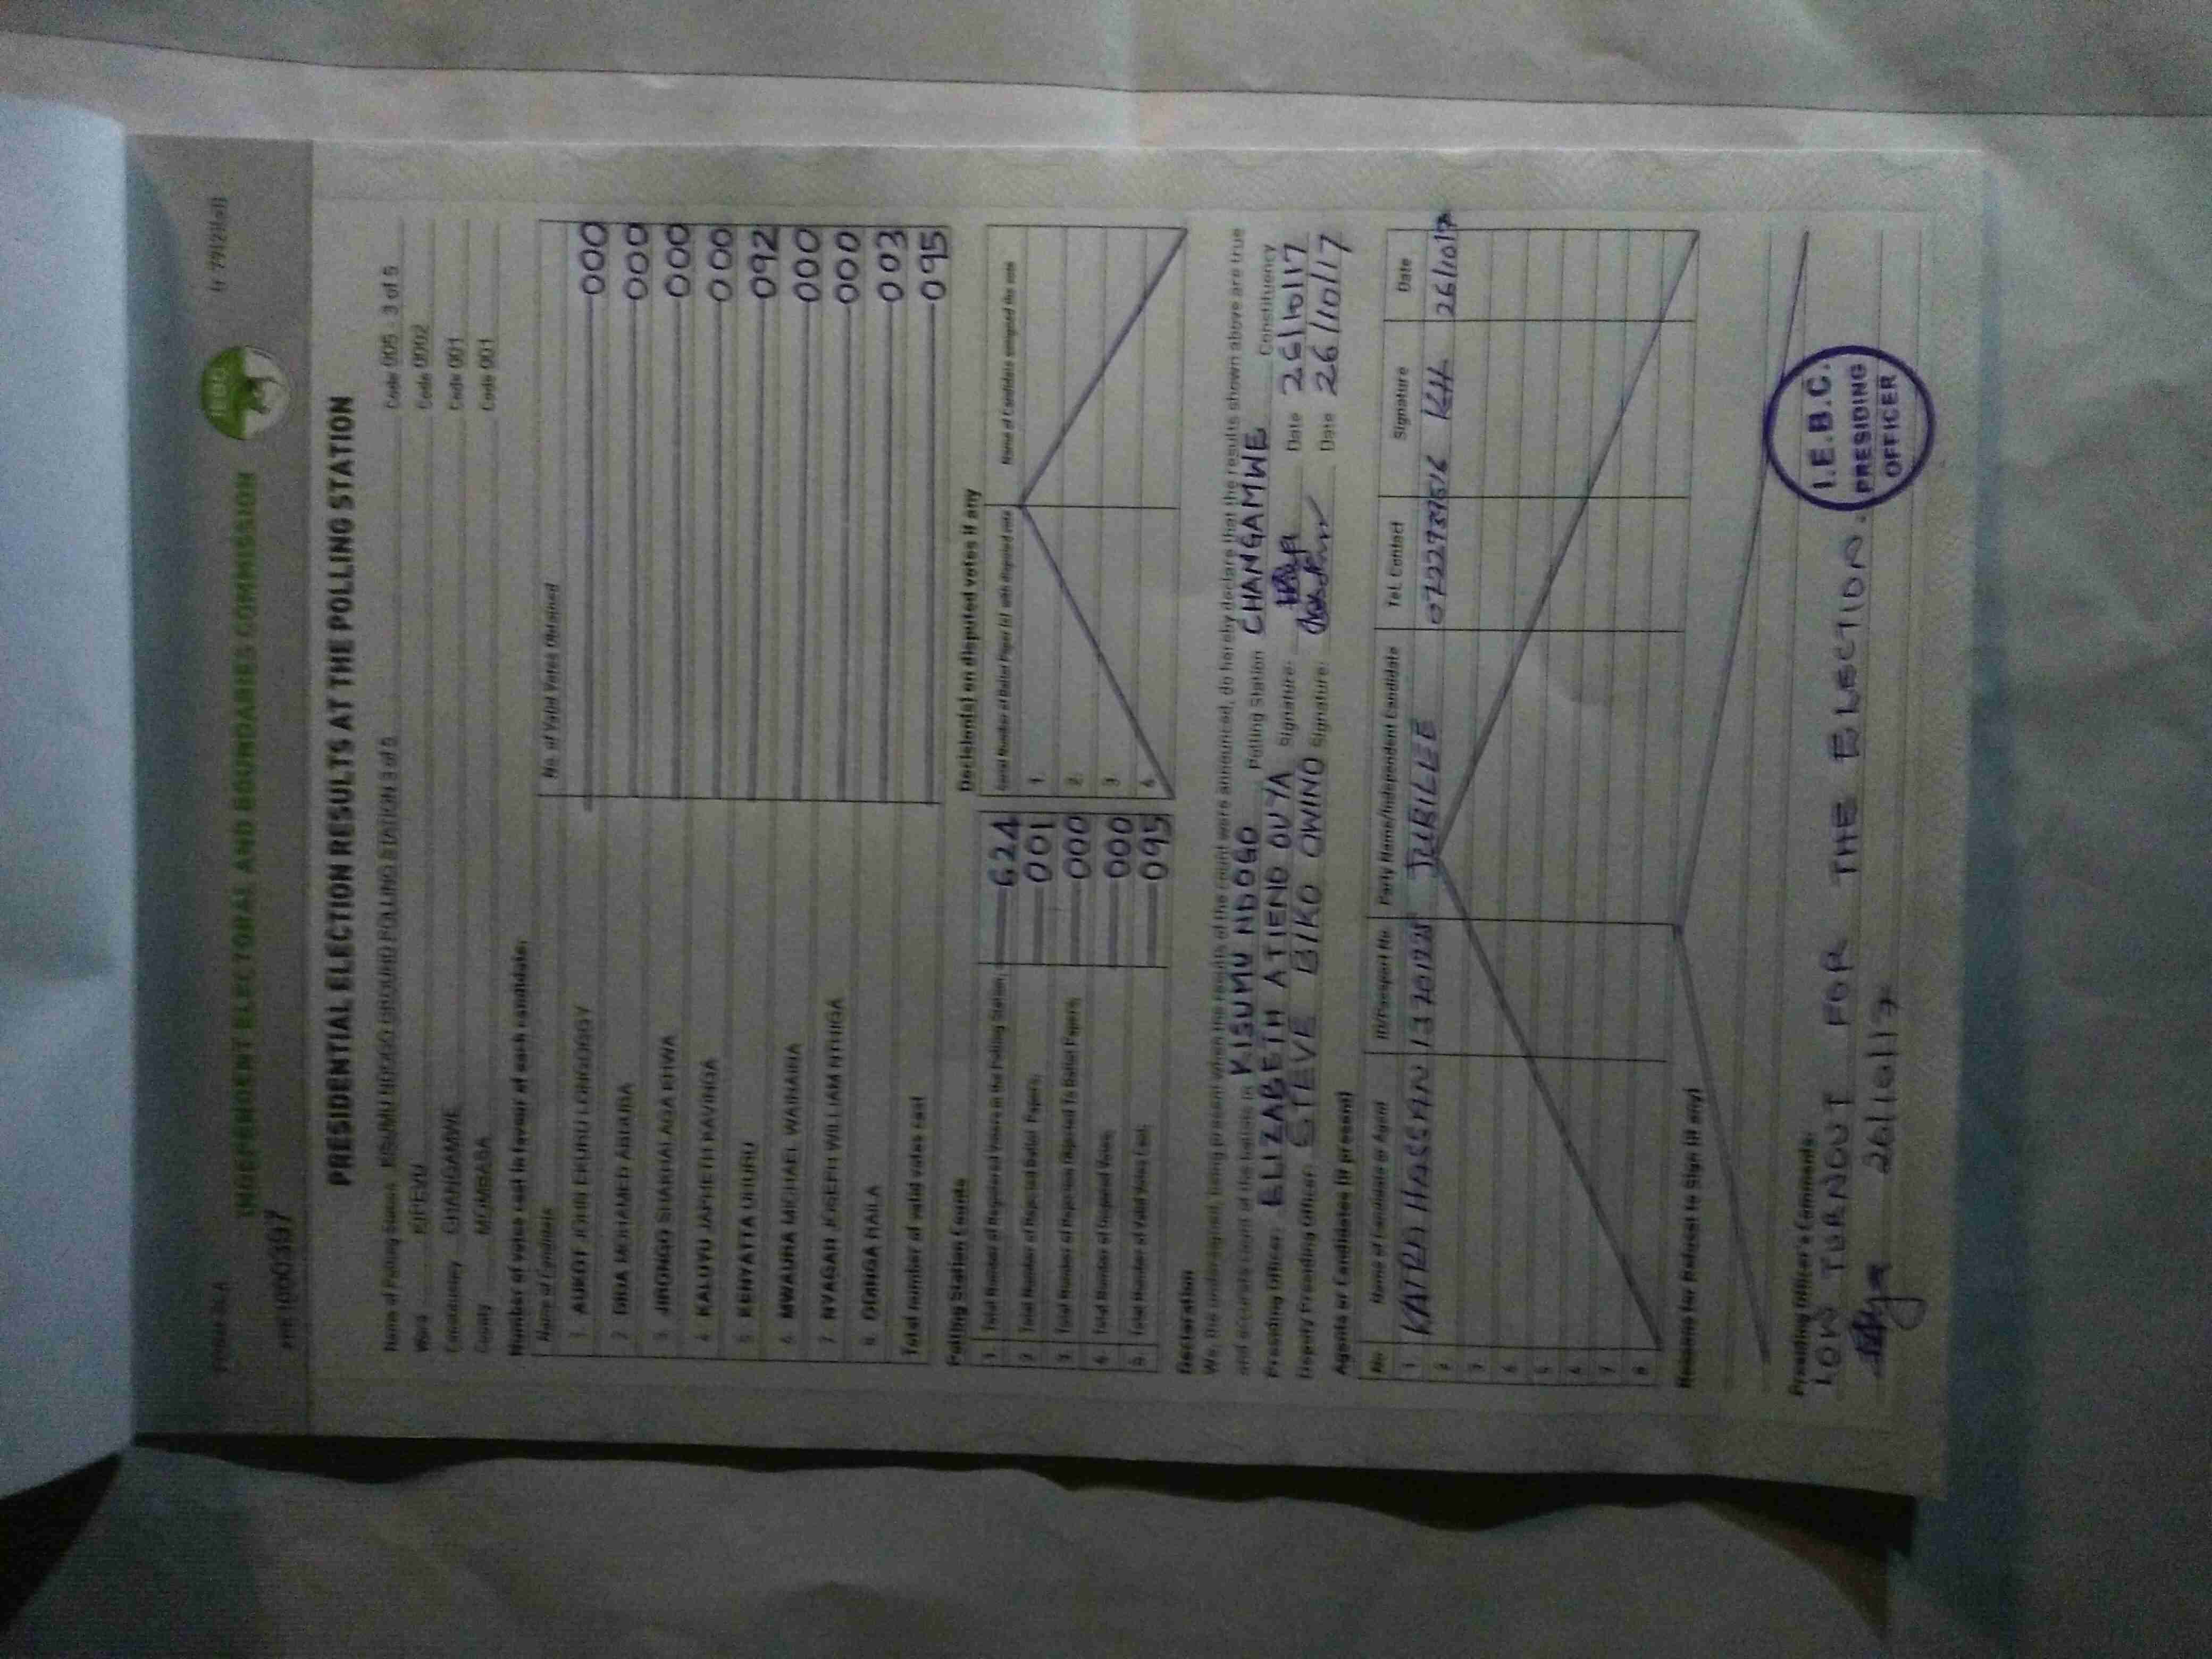 INDEPENDENT ELECTORAL AND BOUNDARIES COMMISSION
IEBC
PRESIDENTIAL ELECTION RESULTS AT THE POLLING STATION
Name of Polling Station KISUMU NDOGO GROUND POLLING STATION 3 of 5 Code 005 3 of 5
Ward KIPEVU Code 0002
Constituency CHANGAMWE Code 001
County MOMBASA Code 001
Number of votes cast in favour of each candidate:
Name of Candidate No. of Valid Votes Obtained
1. AUKOT JOHN EKURU LONGOGGY 000
2. DIDA MOHAMED ABDUBA 000
3. JIRONGO SHAKHALAGA KHWA 000
4. KALUYU JAPHETH KAVINGA 000
5. KENYATTA UHURU 092
6. MWAURA MICHAEL WAINAINA 000
7. NYAGAH JOSEPH WILLIAM NTHIGA 000
8. ODINGA RAILA 003
Total number of valid votes cast 095
Polling Station Counts
1. Total Number of Registered Voters in the Polling Station: 624
2. Total Number of Rejected Ballot Papers: 001
3. Total Number of Rejection Objected To Ballot Papers: 000
4. Total Number of Disputed Votes: 000
5. Total Number of Valid Votes Cast: 095
Decision(s) on disputed votes if any
Serial Number of Ballot Paper (s) with disputed vote Name of Candidate assigned the vote
1
2
3
4
Declaration
We, the undersigned, being present when the results of the count were announced, do hereby declare that the results shown above are true
and accurate count of the ballots in KISUMU NDOGO Polling Station CHANGAMWE Constituency
Presiding Officer: ELIZABETH ATIENO OUYA Signature: Date 26/10/17
Deputy Presiding Officer: STEVE BIKO OWINO Signature: Date 26/10/17
Agents of Candidates (if present)
No. Name of Candidate or Agent ID/Passport No. Party Name/Independent Candidate Tel. Contact Signature Date
1 HASSAN JUBILEE KH 26/10/17
2
3
4
5
6
7
8
Reasons for Refusal to Sign (if any)
Presiding Officer's Comments:
LOW TURNOUT FOR THE ELECTION.
26/10/17
I.E.B.C.
PRESIDING
OFFICER